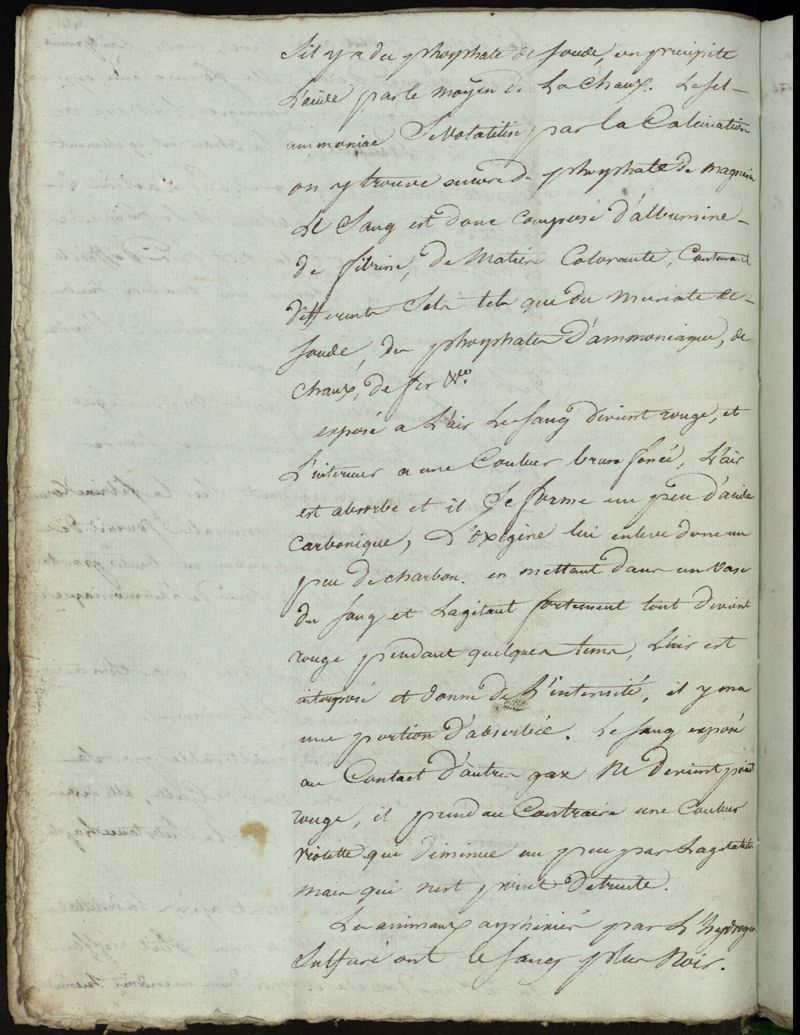 S'il y a du phosphate de soude, on precipite
L'acide par le moyen de La Chaux. Le sel-
ammoniac Se Volatilise par la Calcination
on y trouve encore du phosphate de magnesie
Le Sang est donc Composé d'albumine-
de fibrine, de Matiére Colorante, Contenant
differents Sels tels que du muriate de-
soude, du phosphate d'ammoniaque, de
Chaux, de fer &ca.
exposé a L'air Le sang devient rouge, et
L'interieur a une Couleur brune foncé, L'air
est absorbé et il Se forme un peu d'acide
Carbonique, L'oxigéne lui enleve donc un
peu de charbon. en mettant dans un vase
du sang et Lagitant fortement tout devient
rouge pendant quelques tems, L'air est
interposé et donne de L'intensité, il y en a
une portion d'absorbée. Le sang exposé
au Contact d'autres gax Ne Devient point
rouge, il prend au Contraire une Couleur
violette qui diminue un peu par Lagitation
mais qui n'est point detruite.
Les animaux asphixiés par L'hydrogene
Sulfuré ont le sang plus Noir.